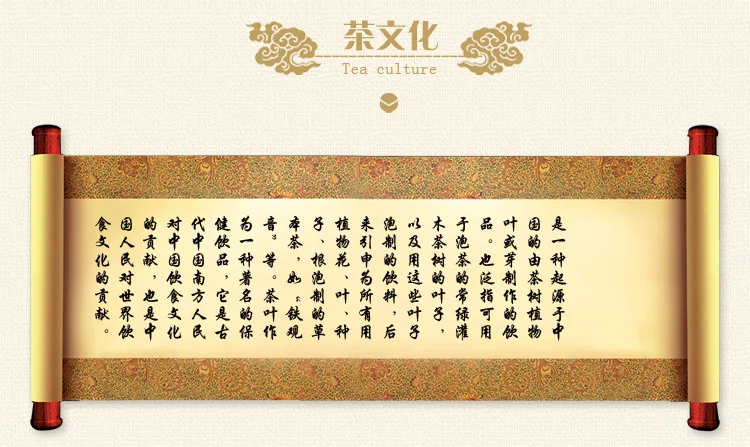 茶文化
Tea culture
是一种起源于中
国的由茶树植物
叶或芽制作的饮
品。也泛指可用
于泡茶的常绿灌
木茶树的叶子，
以及用这些叶子
泡制的饮料，后
来引申为所有用
植物花、叶、种
子、根泡制的草
本茶，如“铁观
音”等。茶叶作
为一种著名的保
健饮品，它是古
代中国南方人民
对中国饮食文化
的贡献，也是中
国人民对世界饮
食文化的贡献。